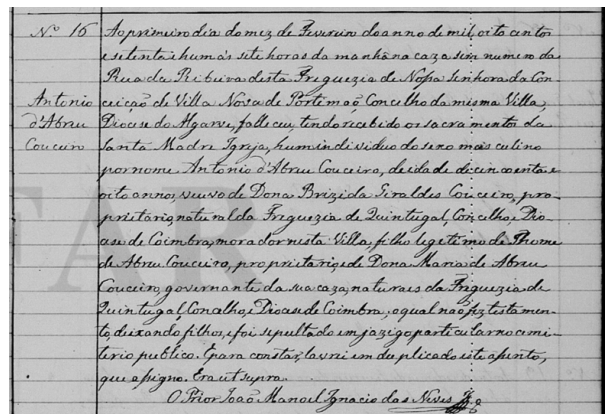 Nº 16
Antonio
d'Abreu
Couceiro
Ao primeiro dia do mez de Fevereiro do anno de mil oito centos
e setenta e hum ás sete horas da manhã na caza sem numero da
Rua da Ribeira desta Freguezia de Nossa Senhora da Con
ceição de Villa Nova de Portimaõ, Concelho da mesma Villa,
Diocese do Algarve, falleceu, tendo recebido os sacramentos da
Santa Madre Igreja, hum individuo do sexo masculino
por nome Antonio d'Abreu Couceiro, de idade de cincoenta e
oito annos, viuvo de Dona Brizida Giraldes Couceiro, pro
prietario, natural da Freguezia de Quintugal, Concelho e Dio
cese de Coimbra, morador nesta Villa, filho legitimo de Thome
de Abreu Couceiro, proprietario, e de Dona Maria de Abreu
Couceiro, governante da sua caza, naturaes da Freguezia de
Quintugal, Concelho e Diocese de Coimbra, o qual não fez testamen
to, deixando filhos, e foi sepultado em jazigo particular no cemi
terio publico. E para constar, lavrei em duplicado este assento,
que assigno. Era ut supra.
O Prior João Manoel Ignacio das Neves
FAR